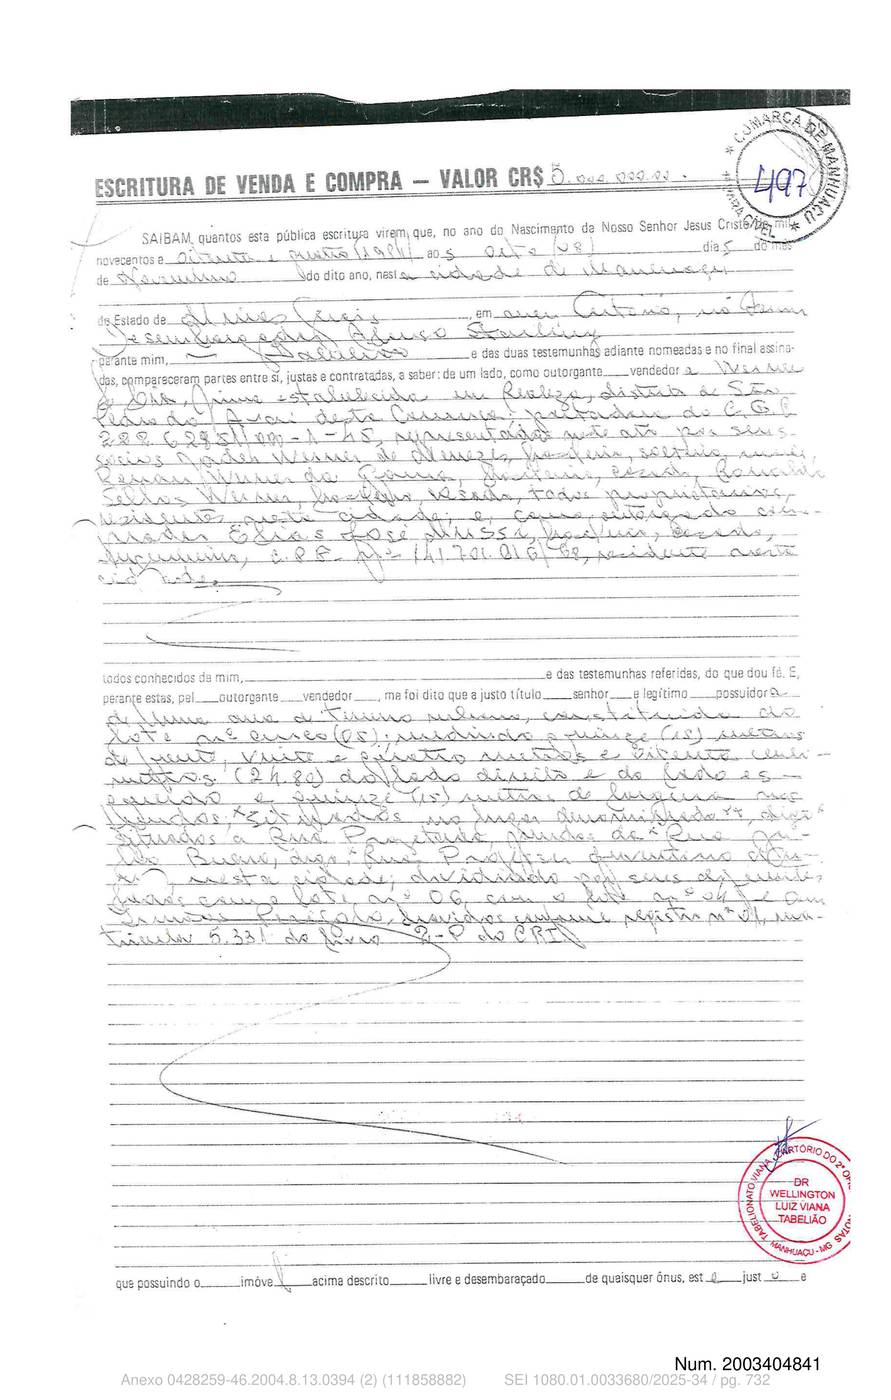 COMARCA DE MANHUAÇU
1ª VARA CÍVEL
497
ESCRITURA DE VENDA E COMPRA — VALOR CR$ 5.000.000,00.
SAIBAM, quantos esta pública escritura virem, que, no ano do Nascimento da Nosso Senhor Jesus Cristo de mil
novecentos e oitenta e quatro (1984) ao s oito (08) dia s do mês
de Novembro do dito ano, nest a cidade de Manhuaçu,
do Estado de Minas Gerais, em meu Cartório, no Forum
Desembargador Alonso Starling
perante mim, Tabelião e das duas testemunhas adiante nomeadas e no final assina-
das, compareceram partes entre si, justas e contratadas, a saber: de um lado, como outorgante vendedor a Werner
& Cia, firma estabelecida em Realeza, distrito de São
Pedro do Avaí desta Comarca, portadora do C.G.C
representada neste ato por seus
socios Werner de Menezes, brasileiro, solteiro, maior,
Renan Werner da Gama, brasileiro, casado, Ronaldo
Sellos Werner, brasileiro, casado, todos proprietarios,
residentes nesta cidade; e, como outorgado com-
prador Elias José Mussi, brasileiro, casado,
C.P.F. nº 141.701.016/68, residente nesta
cidade.
todos conhecidos de mim, e das testemunhas referidas, do que dou fé. E,
perante estas, pel outorgante vendedor , me foi dito que a justo título senhor e legítimo possuidor a
de uma area de terreno urbano, constituida do
lote nº cinco (05); medindo quinze (15) metros
de frente, vinte e quatro metros e oitenta centi-
metros (24,80) do lado direito e do lado es-
querdo e quinze (15) metros de largura nos
fundos, situados no lugar denominado, digo
situados a Rua Projetada, fundos da Rua
Bueno, digo, Rua Professor Juventino
nesta cidade; dividindo por seus diferentes
lados com o lote nº 06, com o lote nº 04 e com
havidos conforme registro nº 01, ma-
tricula 5.331 do livro 2-P do CRI
TABELIONATO VIANA CARTÓRIO DO 2º OFÍ
NOTAS
DR
WELLINGTON
LUIZ VIANA
TABELIÃO
MANHUAÇU - MG
que possuindo o imóve l acima descrito livre e desembaraçado de quaisquer ônus, est á just o e
Num. 2003404841
Anexo 0428259-46.2004.8.13.0394 (2) (111858882) SEI 1080.01.0033680/2025-34 / pg. 732